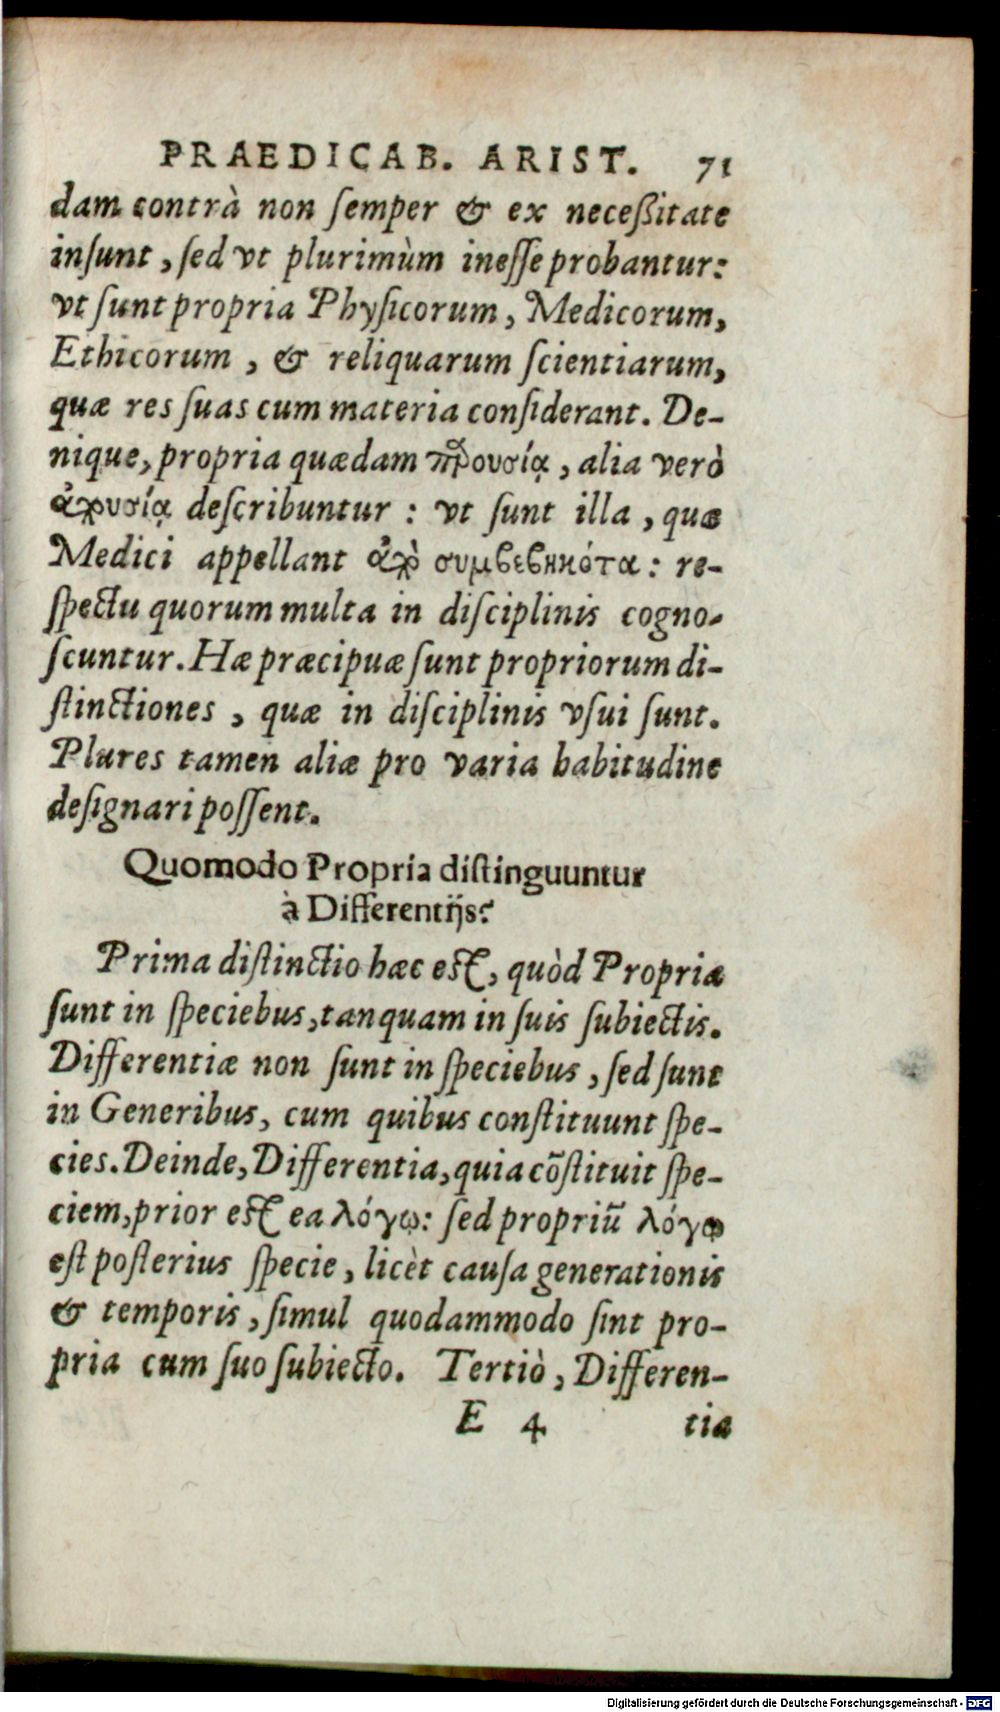 PRAEDICAB. ARIST. 71
dam contrà non ſemper & ex neceßitate
inſunt, ſed vt plurimùm ineſſe probantur:
vt ſunt propria Phyſicorum, Medicorum,
Ethicorum, & reliquarum ſcientiarum,
quæ res ſuas cum materia conſiderant. De-
nique, propria quædam παρουσίᾳ, alia verò
ἀπουσίᾳ deſcribuntur: vt ſunt illa, quæ
Medici appellant συμβεβηκότα: re-
ſpectu quorum multa in diſciplinis cogno-
ſcuntur. Hæ præcipuæ ſunt propriorum di-
ſtinctiones, quæ in diſciplinis vſui ſunt.
Plures tamen aliæ pro varia habitudine
deſignari poſſent.
Quomodo Propria diſtinguuntur
à Differentijs?
Prima diſtinctio hæc eſt, quòd Propria
ſunt in ſpeciebus, tanquam in ſuis ſubiectis.
Differentiæ non ſunt in ſpeciebus, ſed ſunt
in Generibus, cum quibus conſtituunt ſpe-
cies. Deinde, Differentia, quia cõſtituit ſpe-
ciem, prior eſt ea λόγῳ: ſed propriũ λόγῳ
eſt poſterius ſpecie, licèt cauſa generationis
& temporis, ſimul quodammodo ſint pro-
pria cum ſuo ſubiecto. Tertiò, Differen-
E 4 tia
Digitalisierung gefördert durch die Deutsche Forschungsgemeinschaft - DFG